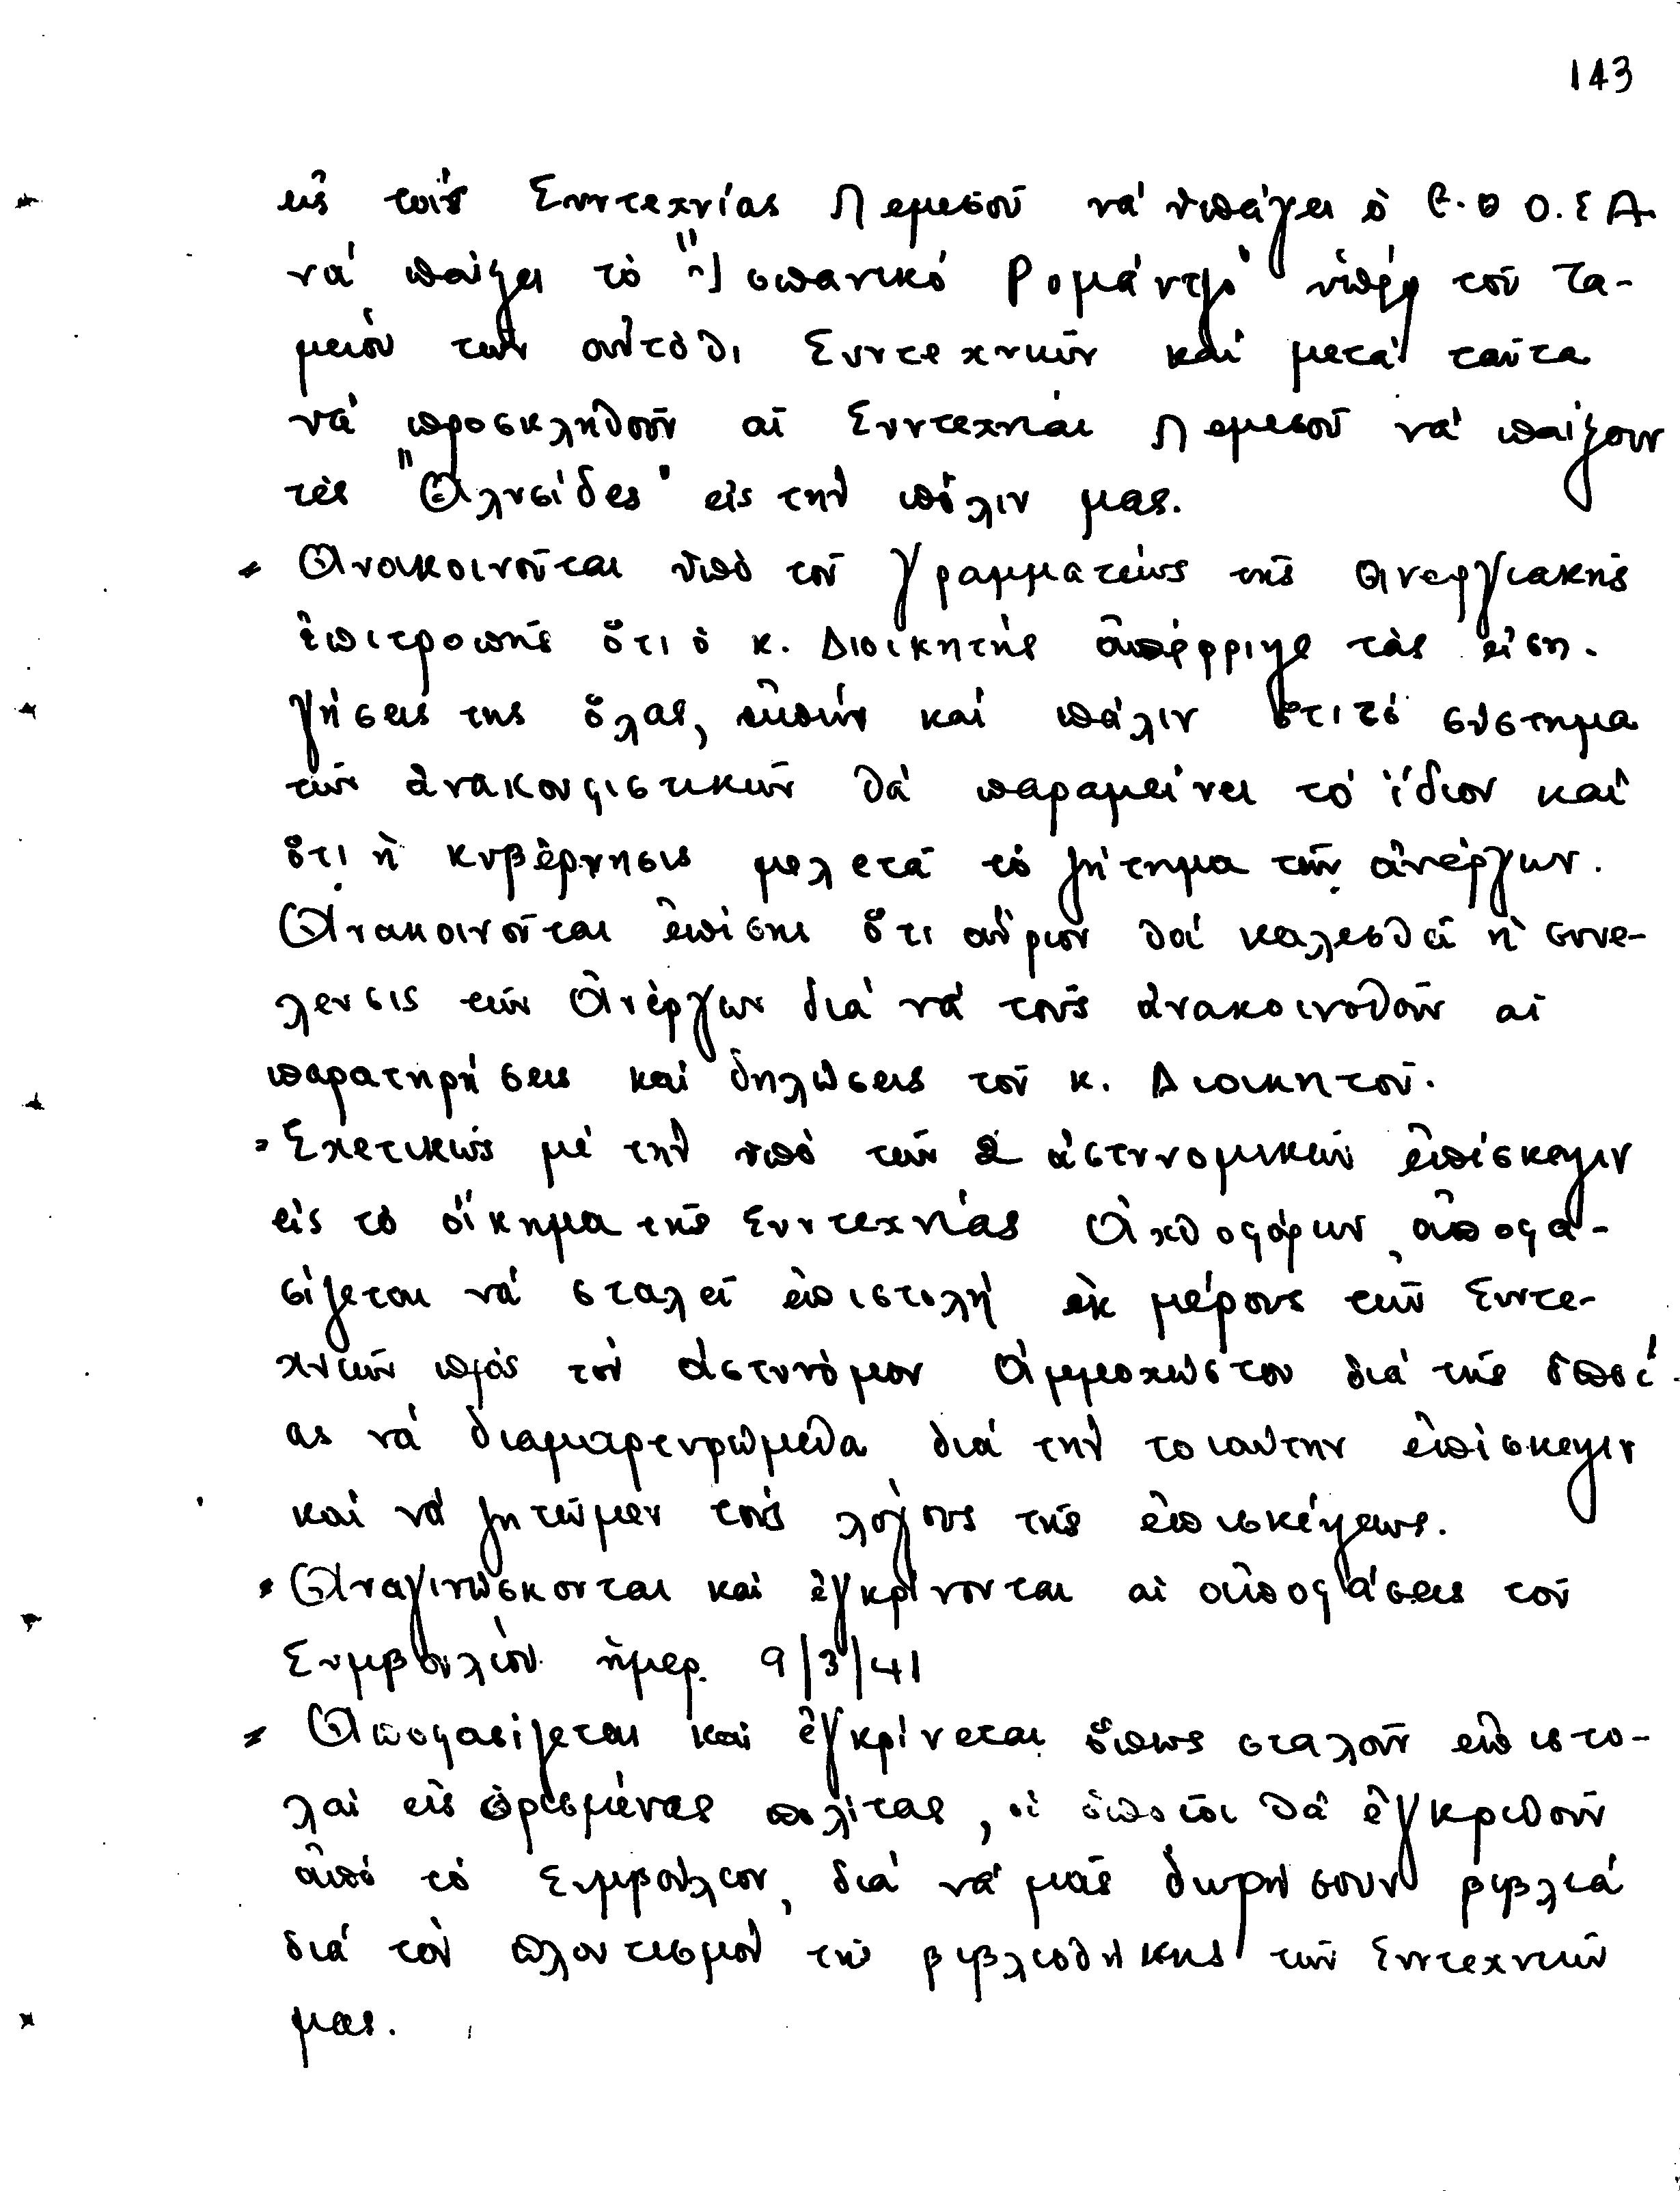 143
εἰς τὰς Συντεχνίας Λεμεσοῦ νά ὑπάγει ὁ Ε.Θ.Ο.Σ.Α.
νά παίξει τὸ "Ἱσπανικό Ρομάντζο" ὑπέρ τοῦ Τα-
μείου τῶν αὐτόθι Συντεχνιῶν καί μετά ταῦτα
νά προσκληθοῦν αἱ Συντεχνίαι Λεμεσοῦ νά παίξουν
τὲς "Ἁλυσίδες" εἰς τήν πόλιν μας.
= Ἀνακοινοῦται ὑπὸ τοῦ γραμματέως τῆς Ἀνεργιακῆς
ἐπιτροπῆς ὅτι ὁ κ. Διοικητής ἀπέρριψε τὰς εἰση-
γήσεις της ὅλας, εἰπών καί πάλιν ὅτι τό σύστημα
τῶν ἀνακουφιστικῶν θά παραμείνει τό ἴδιον καί
ὅτι ἡ κυβέρνησις μελετᾶ τό ζήτημα τῶν ἀνέργων.
Ἀνακοινοῦται ἐπίσης ὅτι αὔριον θά καλεσθεῖ ἡ συνέ-
λευσις τῶν Ἀνέργων διά νά τούς ἀνακοινοθοῦν αἱ
παρατηρήσεις καί δηλώσεις τοῦ κ. Διοικητοῦ.
= Σχετικῶς μέ τήν ὑπό τῶν 2 ἀστυνομικῶν ἐπίσκεψιν
εἰς τὸ οἴκημα τῆς Συντεχνίας Ἀχθοφόρων, ἀποφα-
σίζεται νά σταλεῖ ἐπιστολή ἐκ μέρους τῶν Συντε-
χνιῶν πρός τόν ἀστυνόμον Ἀμμοχώστου διά τῆς ὁποί-
ας νά διαμαρτυρώμεθα διά τήν τοιαύτην ἐπίσκεψιν
καί νά ζητῶμεν τούς λόγους τῆς ἐπισκέψεως.
= Ἀναγινώσκονται καί ἐγκρίνονται αἱ ἀποφάσεις τοῦ
Συμβουλίου ἡμερ. 9/3/41
= Ἀποφασίζεται καί ἐγκρίνεται ὅπως σταλοῦν ἐπιστο-
λαί εἰς ὁρισμένας πολίτας, οἱ ὁποῖοι θά ἐγκριθοῦν
ἀπό τό Συμβούλιον, διά νά μᾶς δωρήσουν βιβλία
διά τόν πλουτισμόν τῆς βιβλιοθήκης τῶν Συντεχνιῶν
μας.